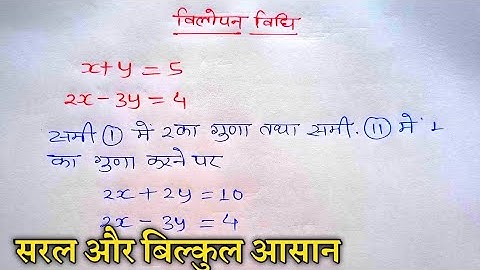 विलोपन विधि
x+y = 5
2x-3y = 4
समी ① में 2 का गुणा तथा समी. ⑪ में 1
का गुणा करने पर
2x + 2y = 10
2x - 3y = 4
सरल और बिल्कुल आसान